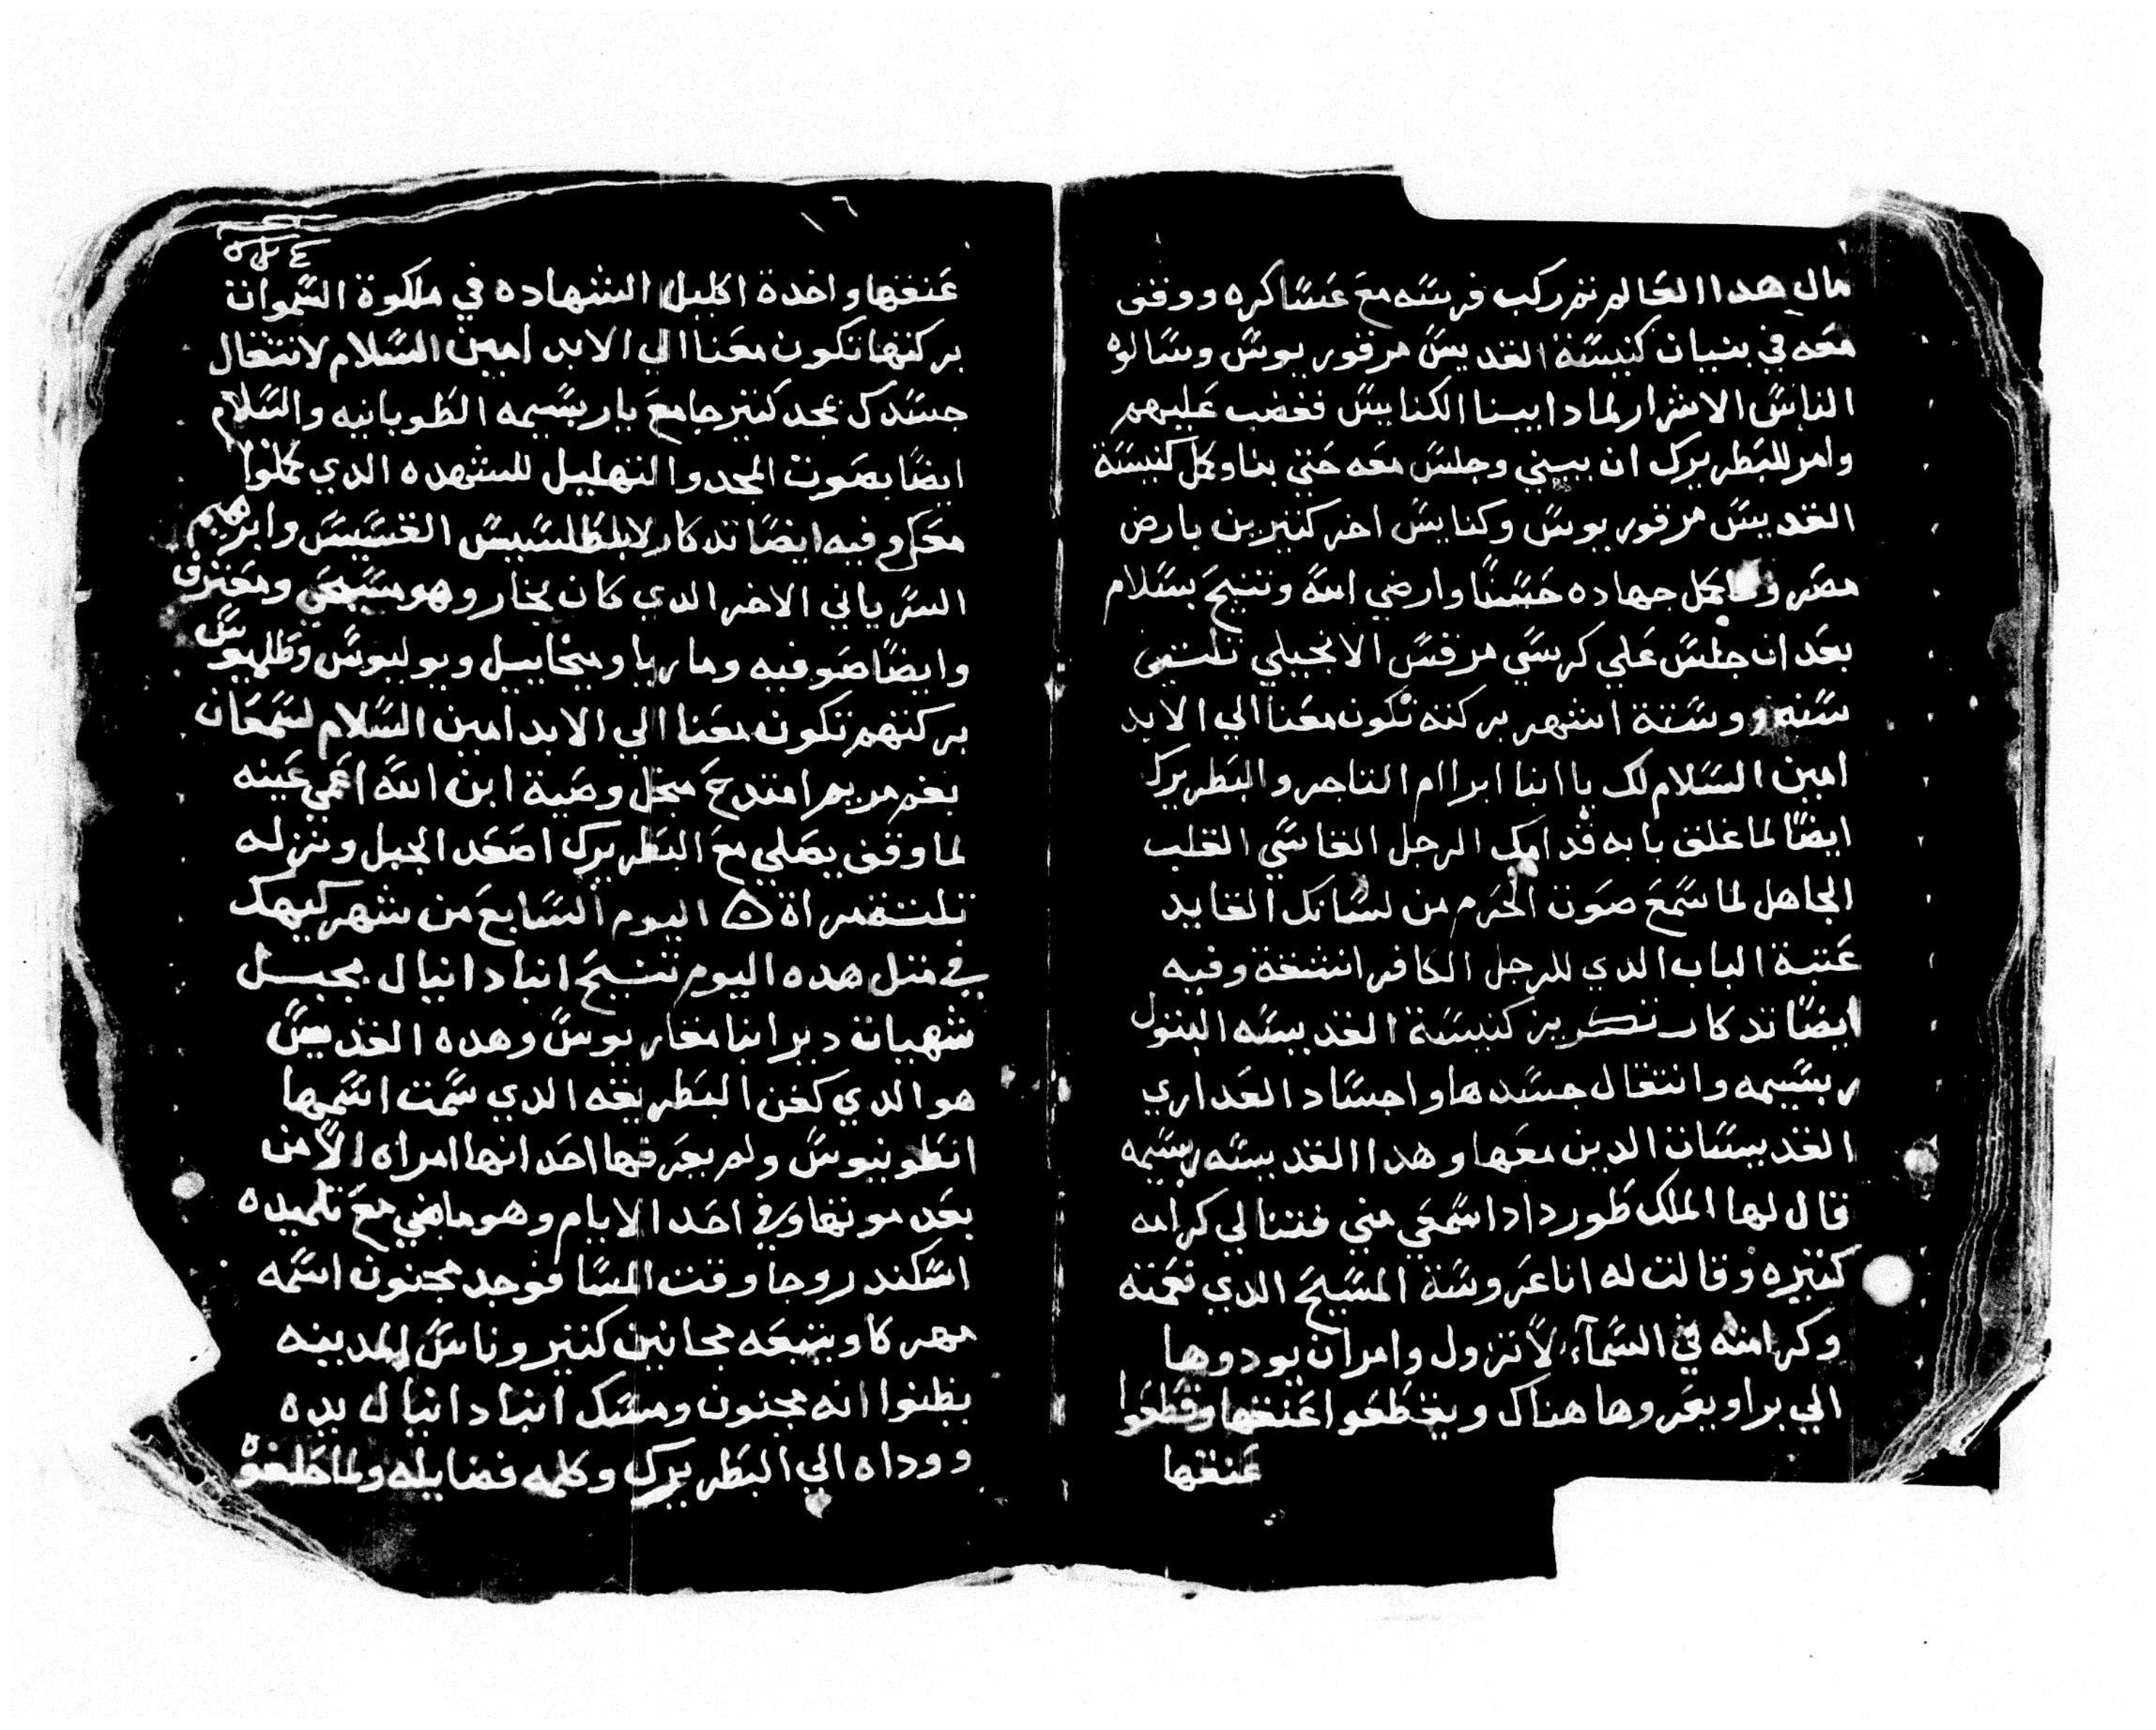 مال هدا العالم تم ركب فرسه مع عساكره ووقف
معه في بنيان كنيسة القديس مرقوريوس وسالوه
الناس الاشرار لمادا يبنا الكنايس فغضب عليهم
وامر للبطريرك ان يبني وجلس معه حتي بنا وكمل كنيسة
القديس مرقوريوس وكنايس اخر كتيرين بارض
مصر و كمل جهاده حسنا وارضي الله وتنيح بسلام
بعد ان جلس علي كرسي مرقس الانجيلي تلتين
سنه وستة اشهر بركته تكون معنا الي الابد
امين السلام لك يا انبا ابراام التاجر والبطريرك
ايضا لما غلق بابه قدامك الرجل القاسي القلب
الجاهل لما سمع صوت الحرم من لسانك القايد
عتبة الباب الدي للرجل الكافر انشقة وفيه
ايضا تدكار تكريز كنيسة القديسه البتول
ربسيمه وانتقال جسدها واجساد العداري
القديسات الدين معها وهدا القديسه ربسيمه
قال لها الملك طورداد اسمعي مني فتنالي كرامه
كتيره وقالت له انا عروسة المسيح الدي نعمته
وكرامته في السمآء لا تزول وامر ان يودوها
الي برا ويعروها هناك ويقطعوا عنقها وقطعوا
عنقها
١٦
عنقها واخدة اكليل الشهاده في ملكوة السموات
بركتها تكون معنا الي الابد امين السلام لانتقال
جسدك بمجد كتير جامع يا ربسيمه الطوبانيه والسلام
ايضا بصوت المجد والتهليل للشهده الدي كملوا
معكي وفيه ايضا تدكار لابلطلسيس القسيس وابرهيم
السرياني الاخر الدي كان بخار وهو مسيحي ومعترف
وايضا صوفيه وماريا وميخاييل ويوليوس وطلهيوس
بركتهم تكون معنا الي الابد امين السلام لسمعان
بغم مريم امتدح متل وصية ابن الله اعمي عينه
لما وقف يصلي مع البطريرك اصعد الجبل ونزله
تلتة مراة ۞ اليوم السابع من شهر كيهك
في متل هده اليوم تنيح انبا دانيال بجبل
شهيات دير انبا مقاريوس وهده القديس
هو الدي كفن البطريقه الدي سمت اسمها
انطونيوس ولم يعرفها احد انها امراه الا من
بعد موتها وفي احد الايام وهو ماضي مع تلميده
اسكندروجا وقت المسا فوجد مجنون اسمه
مهركا ويتبعه مجانين كتير وناس المدينه
يظنوا انه مجنون ومسك انبا دانيال يده
ووداه الي البطريرك وكلمه فضايله ولما حلفوه